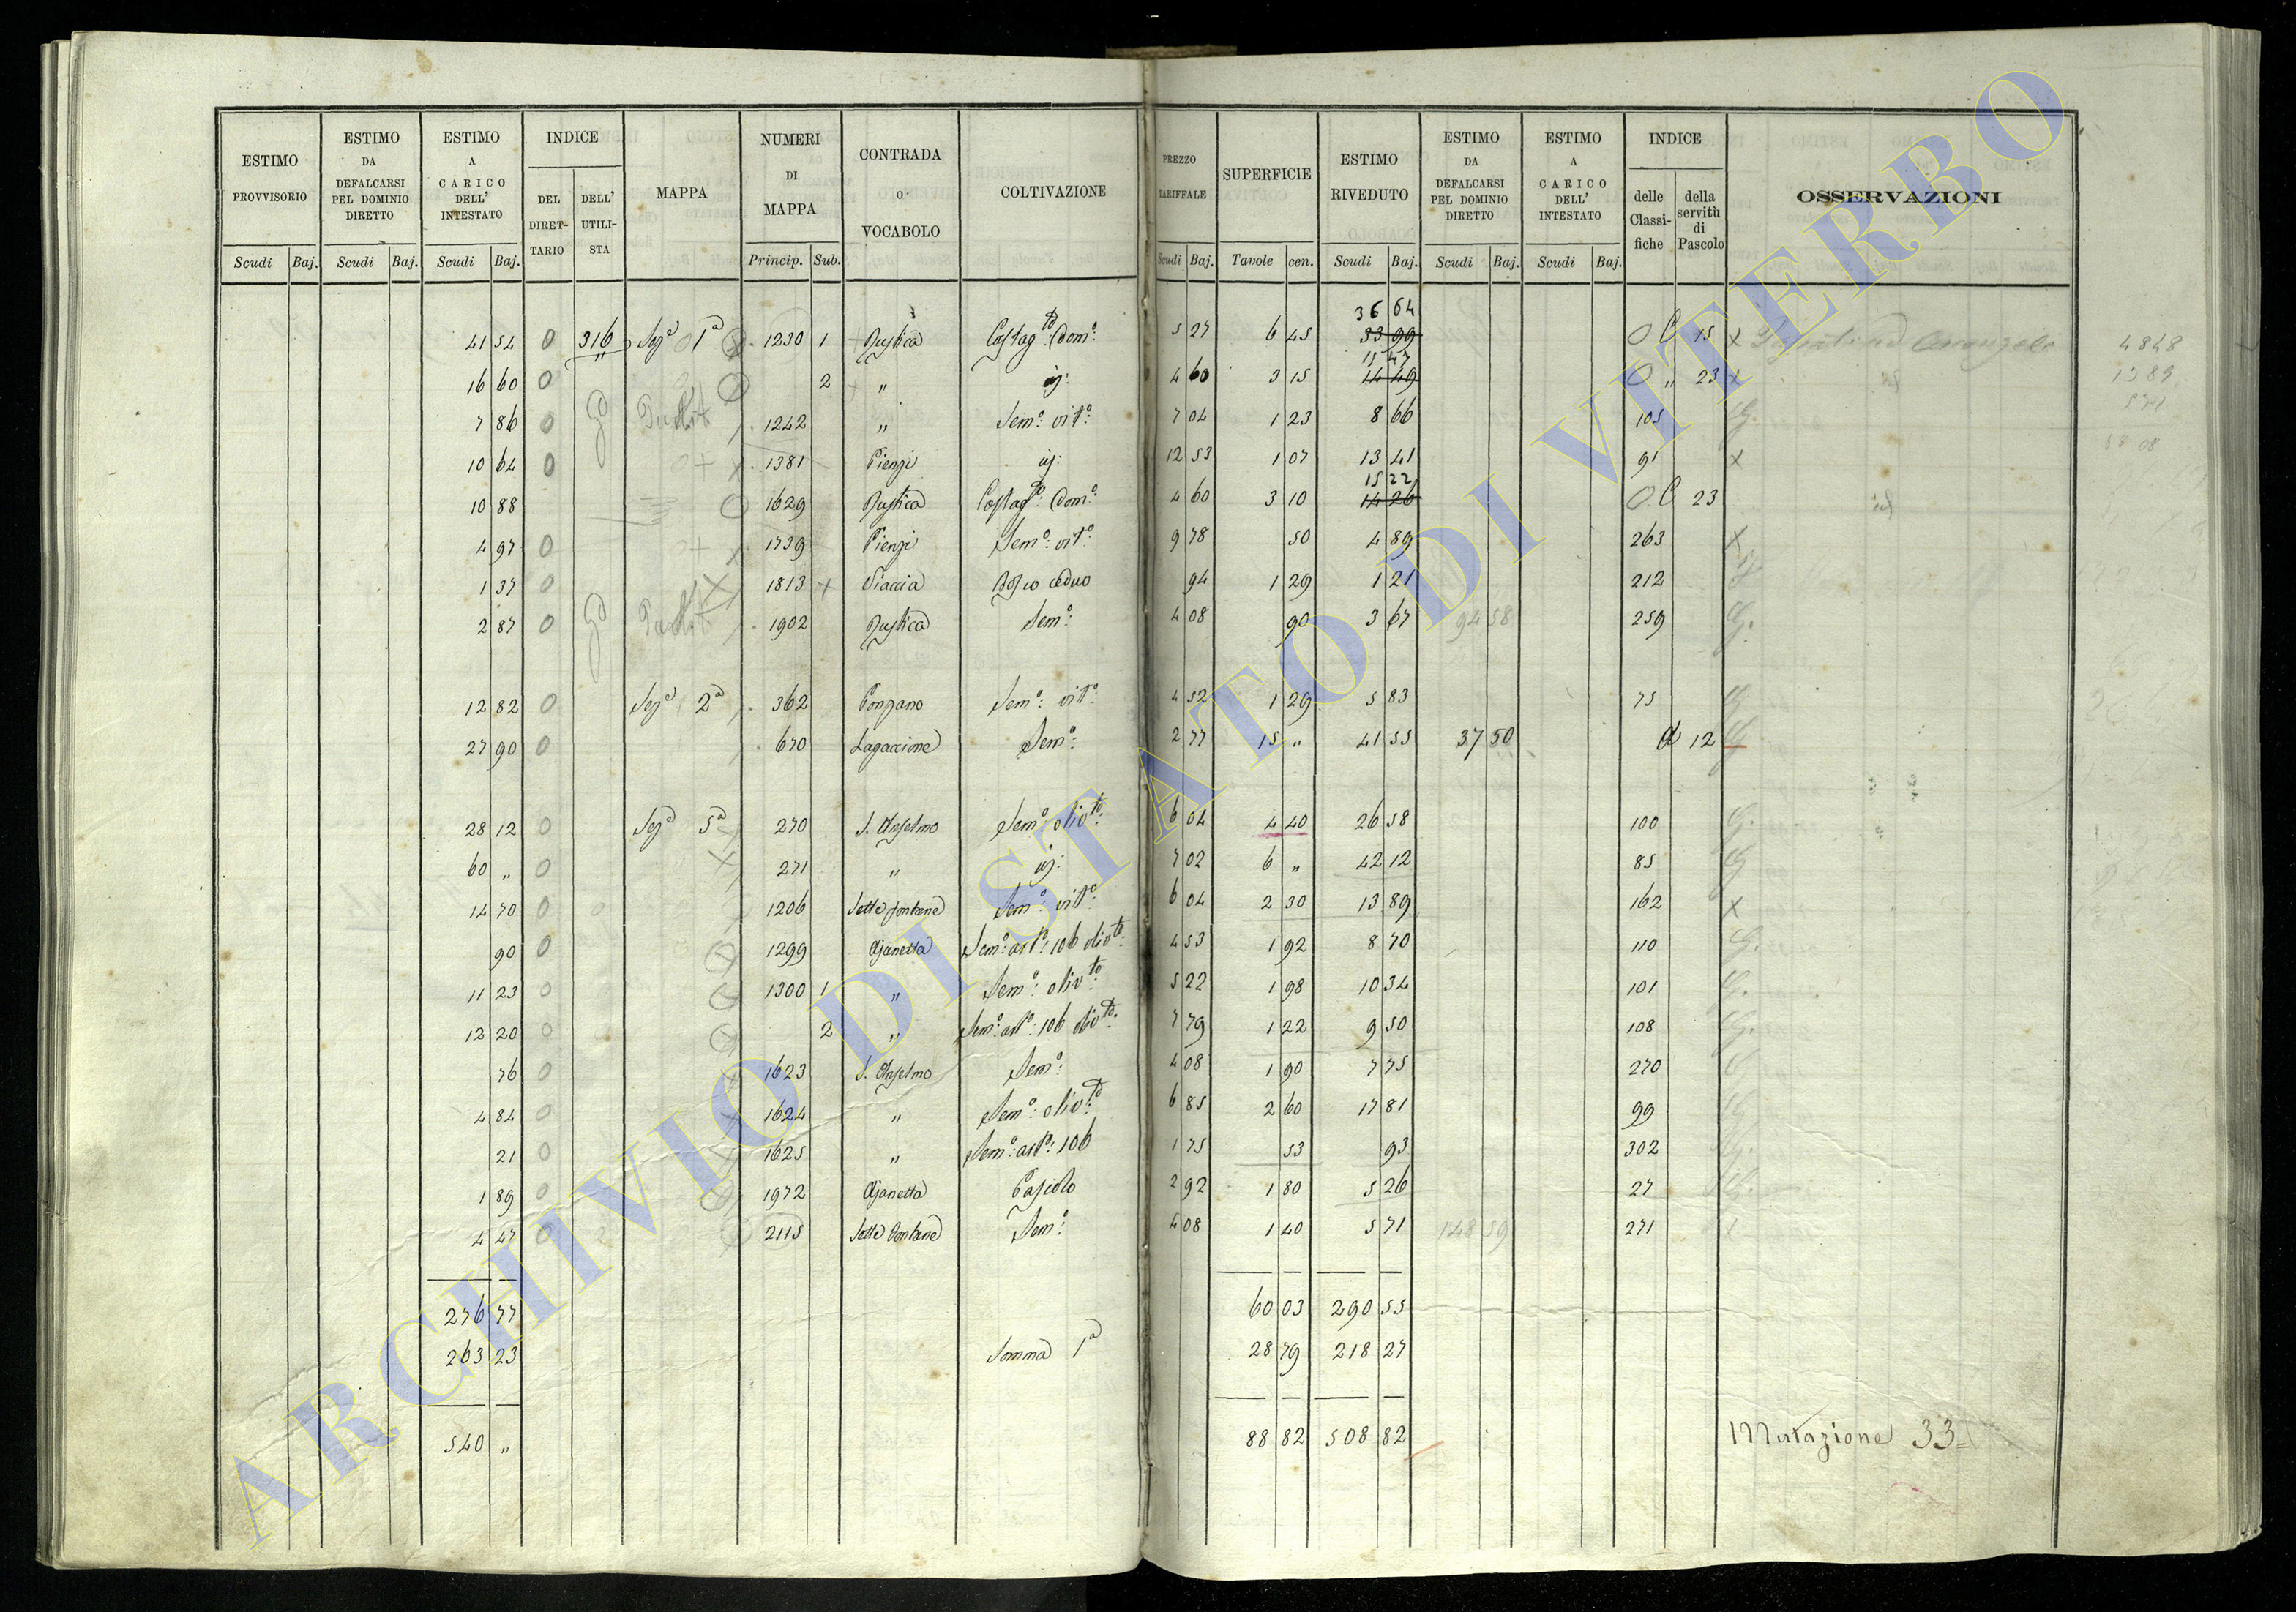 ESTIMO PROVVISORIO | ESTIMO DA DEFALCARSI PEL DOMINIO DIRETTO | ESTIMO A CARICO DELL' INTESTATO | INDICE DEL DIRETTARIO | DELL' UTILISTA | MAPPA | NUMERI DI MAPPA | CONTRADA o VOCABOLO | COLTIVAZIONE | PREZZO TARIFFALE | SUPERFICIE | ESTIMO RIVEDUTO | ESTIMO DA DEFALCARSI PEL DOMINIO DIRETTO | ESTIMO A CARICO DELL' INTESTATO | INDICE delle Classifiche | della servitù di Pascolo | OSSERVAZIONI
Scudi Baj. Scudi Baj. Scudi Baj. Princip. Sub. Scudi Baj. Tavole cen. Scudi Baj. Scudi Baj. Scudi Baj.
36 64
41 54 0 316 Sez.a 1a 1230 1 Rustica Castag.to Dom.o 5 27 6 45 33 99 15 4848
15 47
16 60 0 2 " id: 4 60 3 15 14 49 " 23 1389
7 86 0 1242 " Sem.o vit.o 7 04 1 23 8 66 105 571
10 64 0 1381 Pienzi id: 12 53 1 07 13 41 91 x 58 08
15 22
10 88 1629 Rustica Castag.to Dom.o 4 60 3 10 14 26 23
4 97 0 1739 Pienzi Sem.o vit.o 9 78 50 4 89 263 x
1 37 0 1813 Viaccia Bosco ceduo 94 1 29 1 21 212
2 87 0 1902 Rustica Sem.o 4 08 90 3 67 94 58 259
12 82 0 Sez.a 2a 362 Ponzano Sem.o vit.o 4 52 1 29 5 83 75
27 90 0 670 Lagaccione Sem.o 2 77 15 " 41 55 37 50 12
28 12 0 Sez.a 5a 270 S. Anselmo Sem.o oliv.to 6 04 4 40 26 58 100
60 " 0 271 " id: 7 02 6 " 42 12 85
14 70 0 1206 Sette fontane Sem.o vit.o 6 04 2 30 13 89 162 x
90 0 1299 Ajanetta Sem.o art.o 106 oliv.to 4 53 1 92 8 70 110
11 23 0 1300 1 " Sem.o oliv.to 5 22 1 98 10 34 101
12 20 0 2 " Sem.o art.o 106 oliv.to 7 79 1 22 9 50 108
76 0 1623 S. Anselmo Sem.o 4 08 1 90 7 75 270
4 84 0 1624 " Sem.o oliv.to 6 85 2 60 17 81 99
21 0 1625 " Sem.o art.o 106 1 75 53 93 302
1 89 0 1972 Ajanetta Pascolo 2 92 1 80 5 26 27
4 47 0 2115 Sette Fontane Sem.o 4 08 1 40 5 71 148 59 271
276 77 60 03 290 55
263 23 Somma 1a 28 79 218 27
540 " 88 82 508 82 Mutazione 33
ARCHIVIO DI STATO DI VITERBO